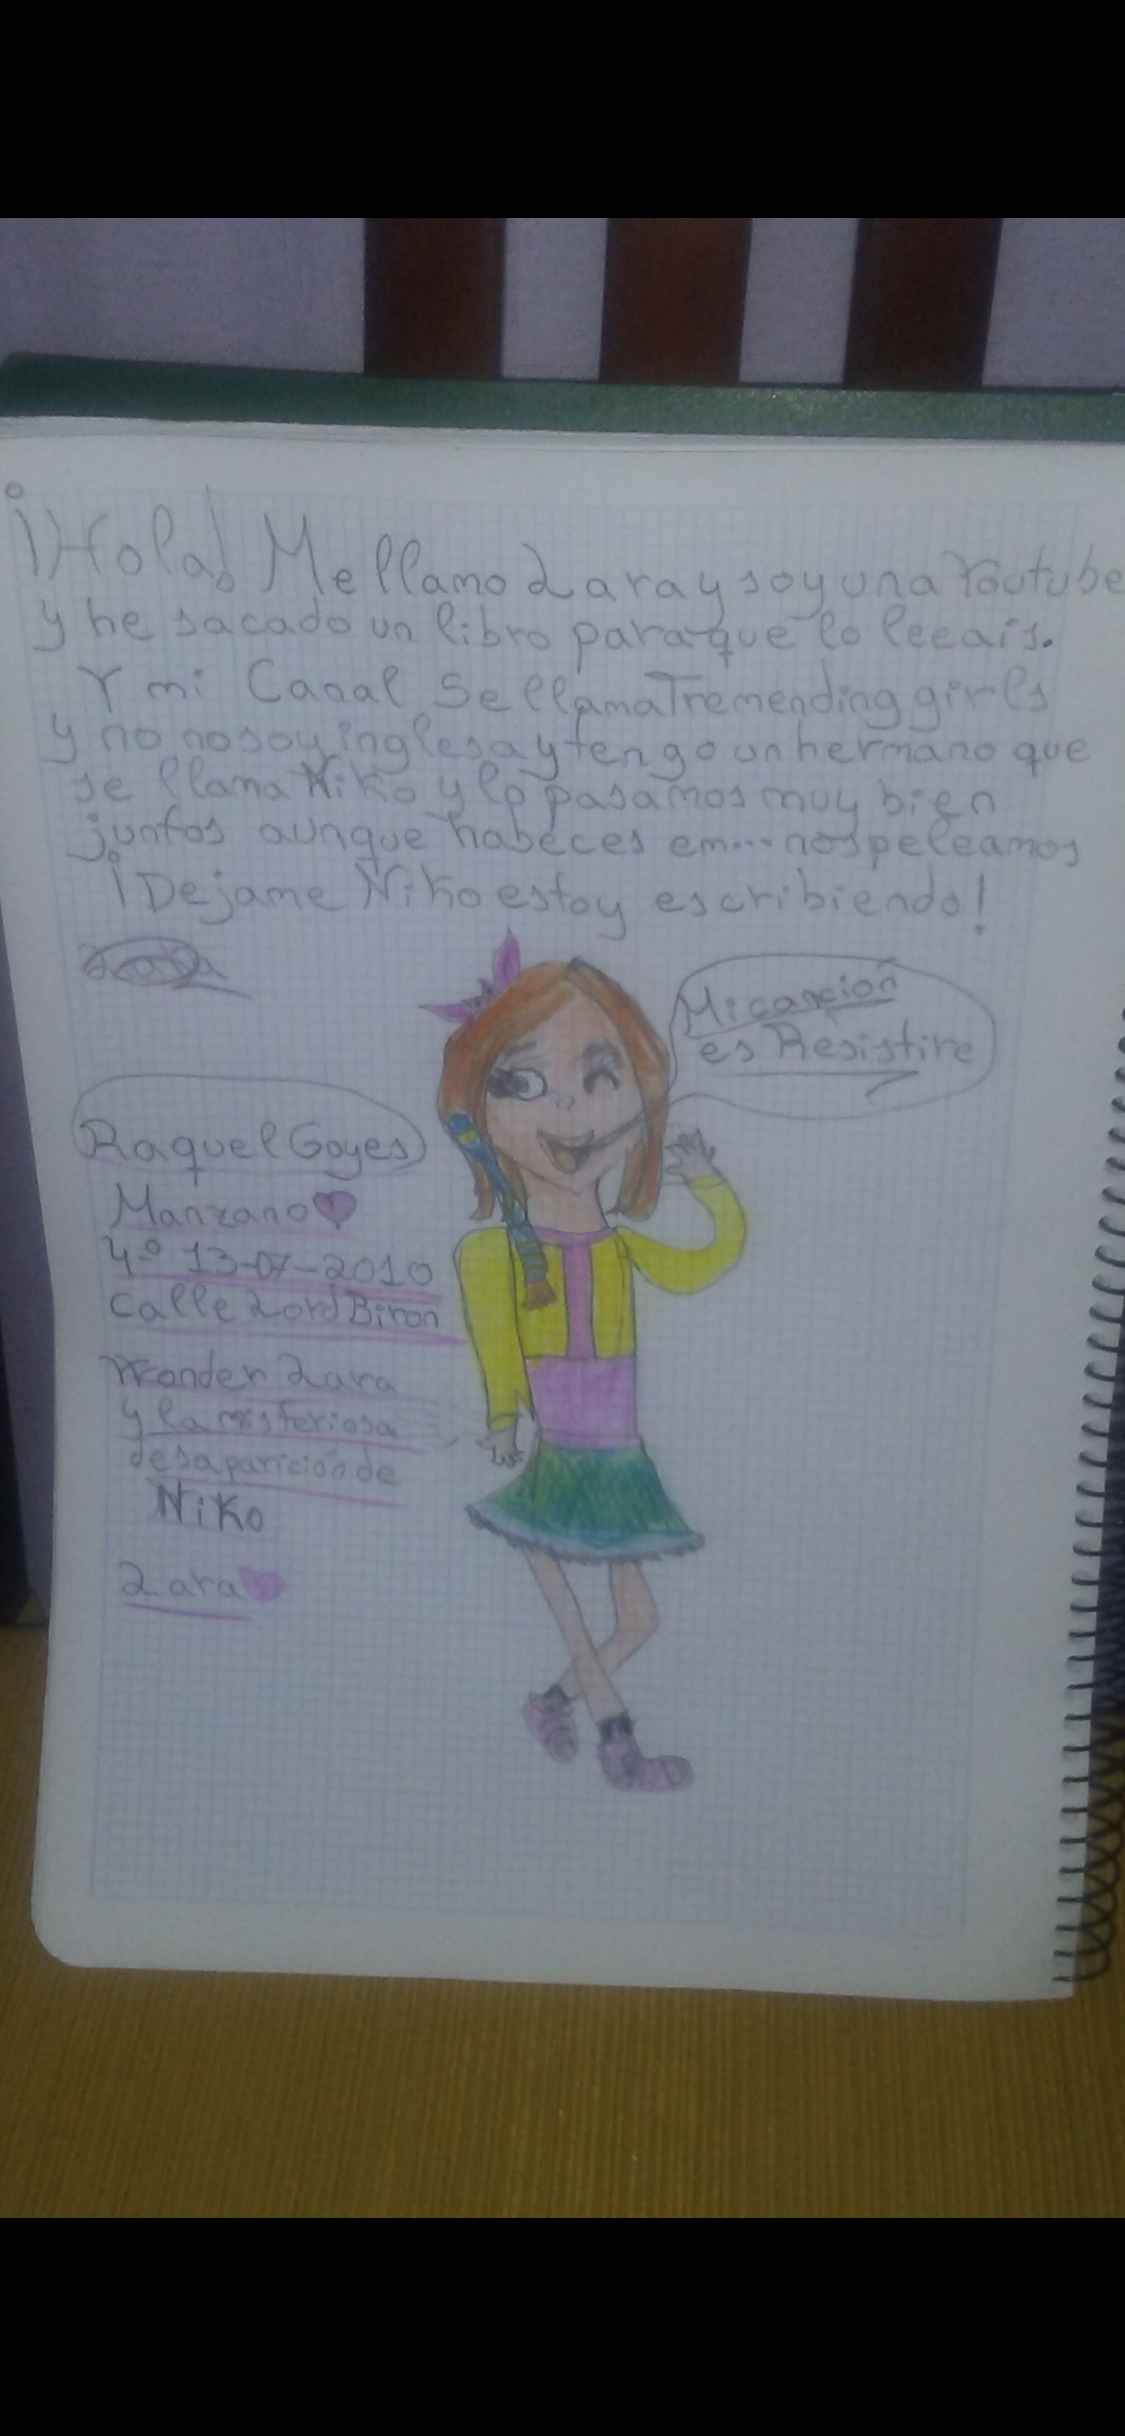 ¡Hola! Me llamo Lara y soy una Youtube
y he sacado un libro para que lo leeais.
Y mi Canal Se llama Tremending girls
y no no soy inglesa y tengo un hermano que
se llama Niko y lo pasamos muy bien
juntos aunque habeces em... nos peleamos
¡Dejame Niko estoy escribiendo!
Mi canción
es Resistire
Raquel Goyes
Manzano
4º 13-07-2010
Calle Lord Biron
Wonder Lara
y la misteriosa
desaparición de
Niko
Lara